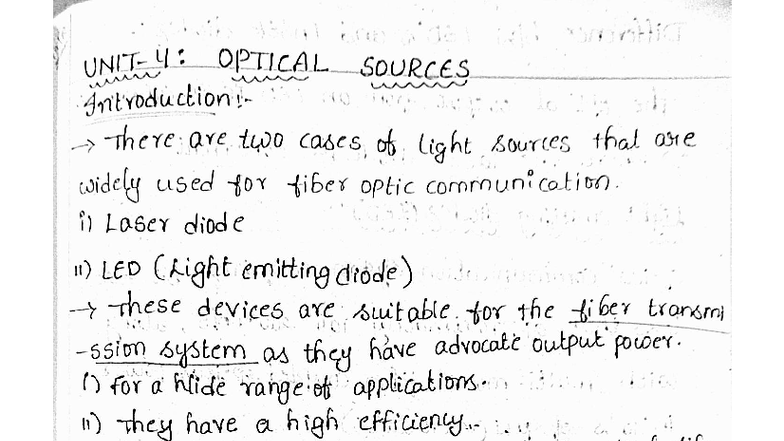 UNIT-4: OPTICAL SOURCES
Introduction:-
→ There are two cases of light sources that are
widely used for fiber optic communication.
i) Laser diode
ii) LED (Light emitting diode)
→ These devices are suitable for the fiber transmi
-ssion system as they have advocate output power.
i) for a Wide range of applications.
ii) They have a high efficiency.